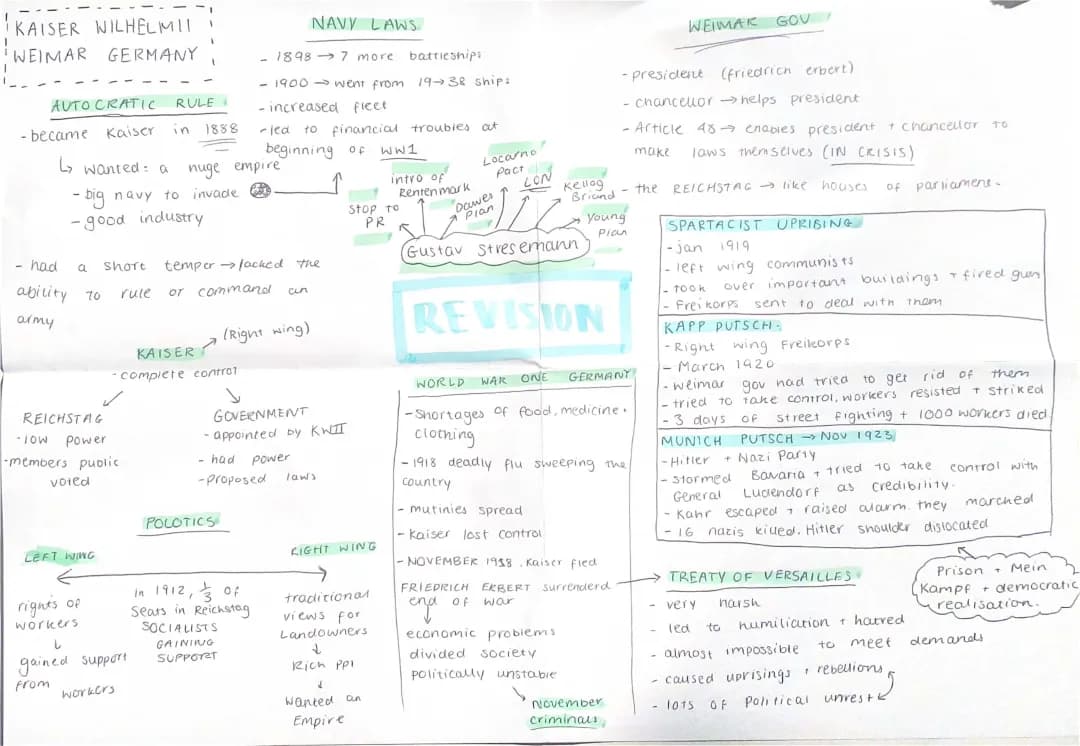 KAISER WILHELMII
WEIMAR GERMANY
AUTOCRATIC RULE
- became Kaiser in 1888
↳ wanted: a huge empire
- big navy to invade
- good industry
- had a short temper → lacked the
ability to rule or command an
army
NAVY LAWS
- 1898 → 7 more battleships
- 1900 → went from 19 → 38 ships
- increased fleet
- led to financial troubles at
beginning of WW1
Stop to
PR
intro of
Rentenmark
Dawes
Plan
Locarno
Pact
LON
Kellog
Briand
Young
Plan
Gustav Stresemann
REVISION
WEIMAR GOV
- president (friedrich erbert)
- chancellor → helps president
- Article 48 → enables president + chancellor to
make laws themselves (IN CRISIS)
- the REICHSTAG → like houses of parliament.
KAISER → (Right wing)
- complete control
REICHSTAG
- low power
- members public
voted
GOVERNMENT
- appointed by KWII
- had power
- proposed laws
POLOTICS
LEFT WING
RIGHT WING
rights of
workers
↓
gained support
from
workers
in 1912, 1/3 of
Seats in Reichstag
SOCIALISTS
GAINING
SUPPORT
traditional
views for
Landowners
↓
Rich ppl
↓
wanted an
Empire
WORLD WAR ONE GERMANY
- Shortages of food, medicine +
clothing
- 1918 deadly flu sweeping the
country
- mutinies spread
- Kaiser lost control
- NOVEMBER 1918. Kaiser fled
FRIEDRICH EKBERT surrenderd →
end of war
↓
economic problems
divided society
politically unstable
November
criminals
SPARTACIST UPRISING
- jan 1919
- left wing communists
- took over important buildings + fired gun
- Freikorps sent to deal with them
KAPP PUTSCH:
- Right wing Freikorps
- March 1920
- Weimar gov had tried to get rid of them
- tried to take control, workers resisted + striked
- 3 days of street fighting + 1000 workers died
MUNICH PUTSCH → Nov 1923
- Hitler + Nazi Party
- stormed Bavaria + tried to take control with
General Ludendorf as credibility.
- Kahr escaped + raised alarm. they marched
- 16 nazis killed. Hitler shoulder dislocated
Prison + Mein
Kampf + democratic
realisation.
TREATY OF VERSAILLES
- very harsh
- led to humiliation + hatred
- almost impossible to meet demands
- caused uprisings + rebellions
- lots of Political unrest